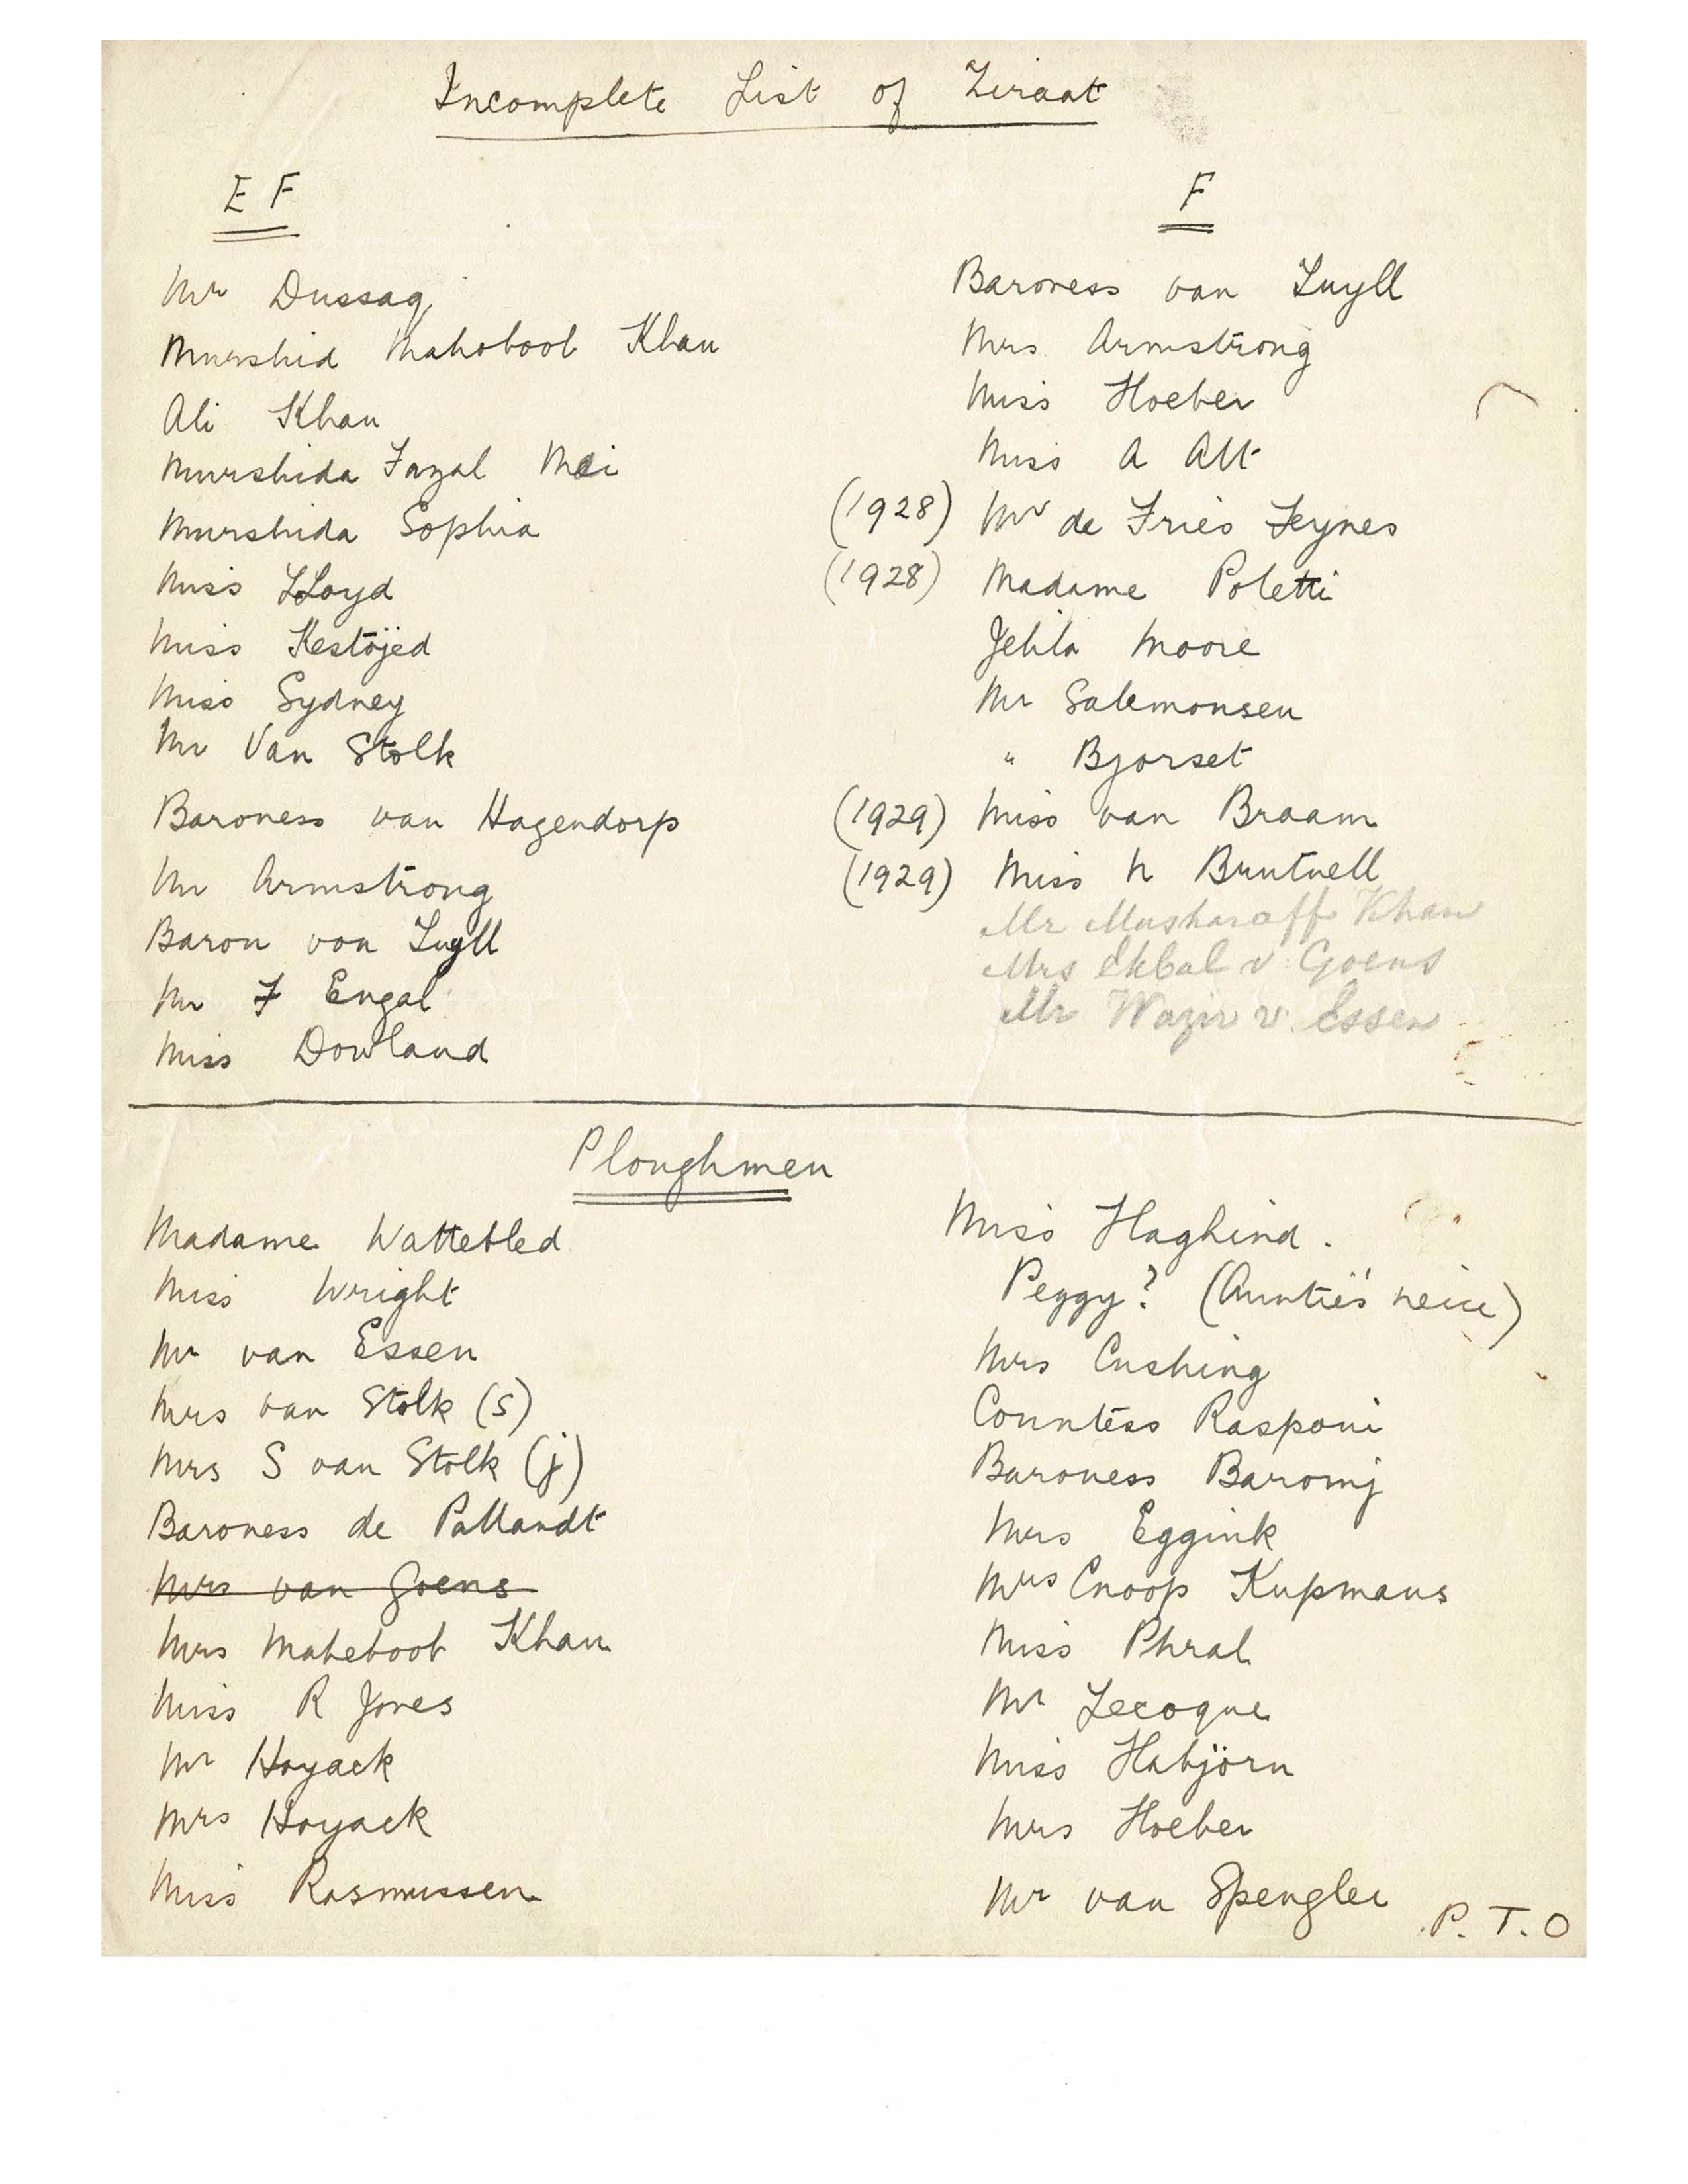 Incomplete List of Ziraat
E F
Mr Dussaq
Murshid Mahoboob Khan
Ali Khan
Murshida Fazal Mai
Murshida Sophia
Miss LLoyd
Miss Kestöjed
Miss Sydney
Mr Van Stolk
Baroness van Hagendorp
Mr Armstrong
Baron von Tuyll
Mr F Engal
Miss Dowland
F
Baroness van Tuyll
Mrs Armstrong
Miss Hoeber
Miss A Alt
(1928) Mr de Fries Feynes
(1928) Madame Poletti
Jehla Moore
Mr Salemonsen
" Bjorset
(1929) Miss van Braam
(1929) Miss N Brutnell
Mr Musharaff Khan
Mrs Ekbal v Goens
Mr Wazir v. Essen
Ploughmen
Madame Wattebled
Miss Wright
Mr van Essen
Mrs van Stolk (s)
Mrs S van Stolk (j)
Baroness de Pallandt
Mrs van Goens
Mrs Maheboob Khan
Miss R Jones
Mr Hoyack
Mrs Hoyack
Miss Rasmussen
Miss Haglind.
Peggy? (Auntie's neice)
Mrs Cushing
Countess Rasponi
Baroness Baronj
Mrs Eggink
Mrs Cnoop Kupmans
Miss Phral
Mr Lecoque
Miss Habjörn
Mrs Hoeber
Mr van Spengler
P. T. O